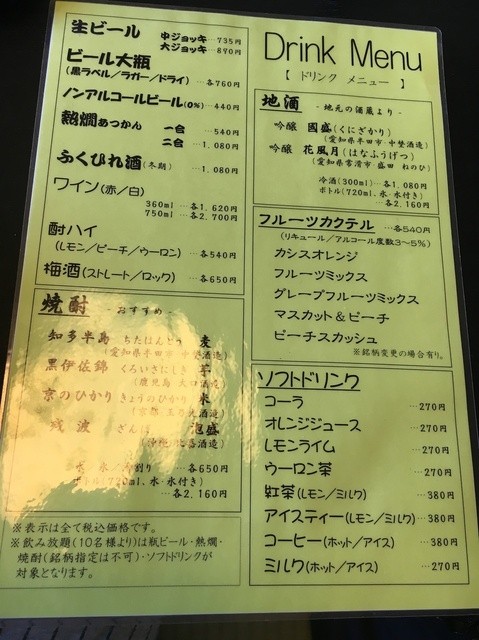 生ビール 中ジョッキ…735円
大ジョッキ…890円
ビール大瓶
(黒ラベル/ラガー/ドライ) …各760円
ノンアルコールビール(0%)…440円
熱燗あつかん 一合 …540円
二合 …1.080円
ふくひれ酒(冬期) …1.080円
ワイン(赤/白)
360ml …各1.620円
750ml …各2.700円
酎ハイ
(レモン/ピーチ/ウーロン) …各540円
梅酒(ストレート/ロック) …各650円
焼酎 -おすすめ-
知多半島 ちたはんとう 麦
(愛知県半田市・中埜酒造)
黒伊佐錦 くろいさにしき 芋
(鹿児島 大口酒造)
京のひかり きょうのひかり 米
残波 ざんぱ 泡盛
(沖縄 比嘉酒造)
…各650円
ボトル(720ml、水・氷付き)
…各2.160円
※表示は全て税込価格です。
※飲み放題(10名様より)は瓶ビール・熱燗・
焼酎(銘柄指定は不可)・ソフトドリンクが
対象となります。
Drink Menu
【 ドリンク メニュー 】
地酒 -地元の酒蔵より-
吟醸 國盛(くにざかり)
(愛知県半田市・中埜酒造)
吟醸 花風月(はなふうげつ)
(愛知県常滑市・盛田 ねのひ)
冷酒(300ml)…各1.080円
ボトル(720ml、氷・水付き)
…各2.160円
フルーツカクテル …各540円
(リキュール/アルコール度数3~5%)
カシスオレンジ
フルーツミックス
グレープフルーツミックス
マスカット&ピーチ
ピーチスカッシュ
※銘柄変更の場合有り。
ソフトドリンク
コーラ …270円
オレンジジュース …270円
レモンライム …270円
ウーロン茶 …270円
紅茶(レモン/ミルク) …380円
アイスティー(レモン/ミルク)…380円
コーヒー(ホット/アイス) …380円
ミルク(ホット/アイス) …270円